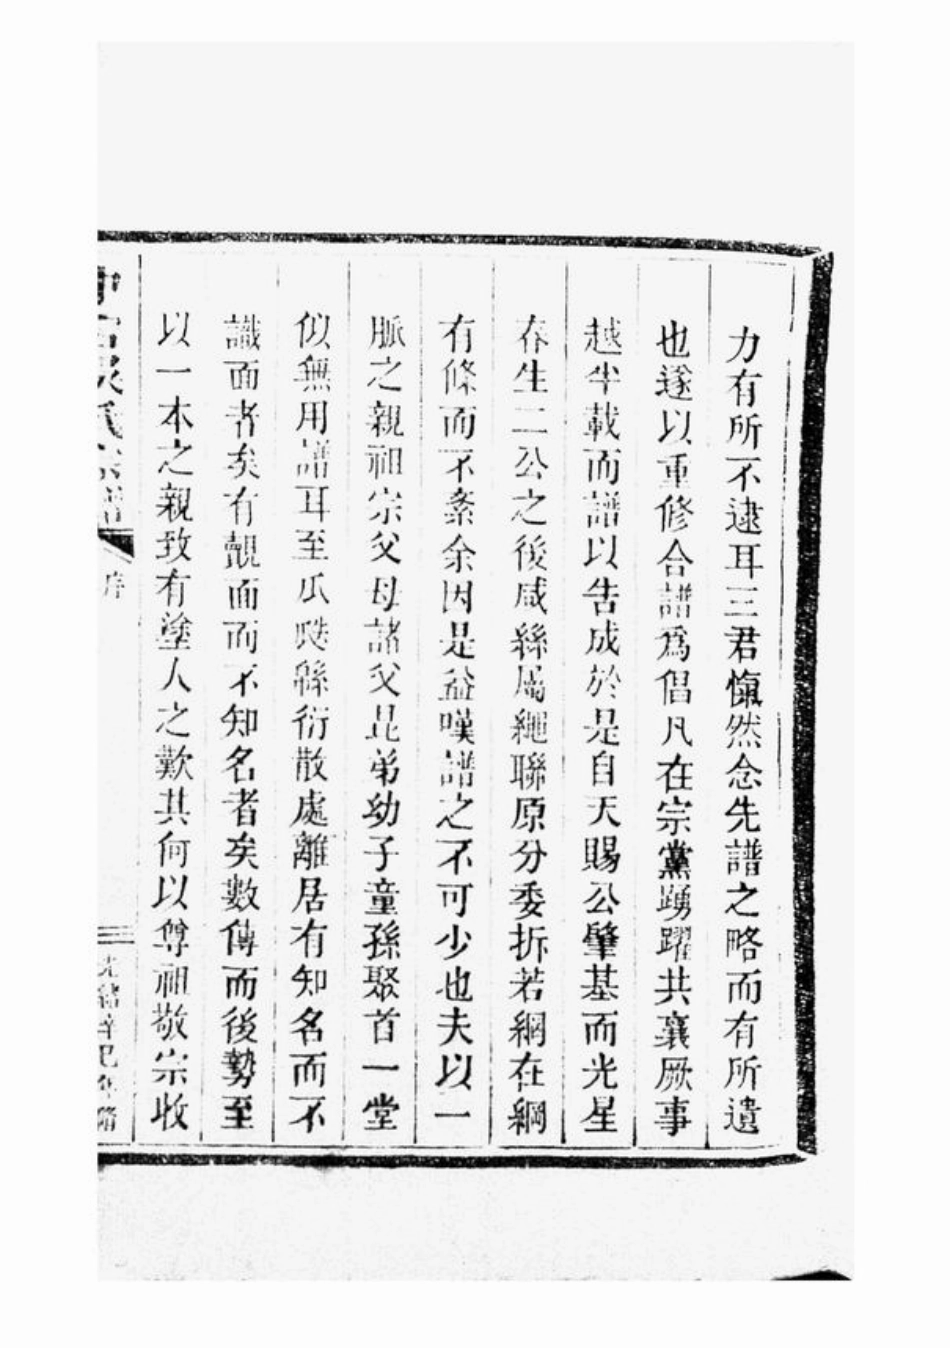 力有所不逮耳三君愾然念先譜之略而有所遺
也遂以重修合譜爲倡凡在宗黨踴躍共襄厥事
越半載而譜以告成於是自天賜公肇基而光星
春生二公之後咸絲屬繩聯原分委拆若綱在綱
有條而不紊余因是益嘆譜之不可少也夫以一
脈之親祖宗父母諸父昆弟幼子童孫聚首一堂
似無用譜耳至瓜瓞緜衍散處離居有知名而不
識面者矣有覿面而不知名者矣數傳而後勢至
以一本之親致有塗人之歎其何以尊祖敬宗收
氏宗譜
序
光緒辛巳年